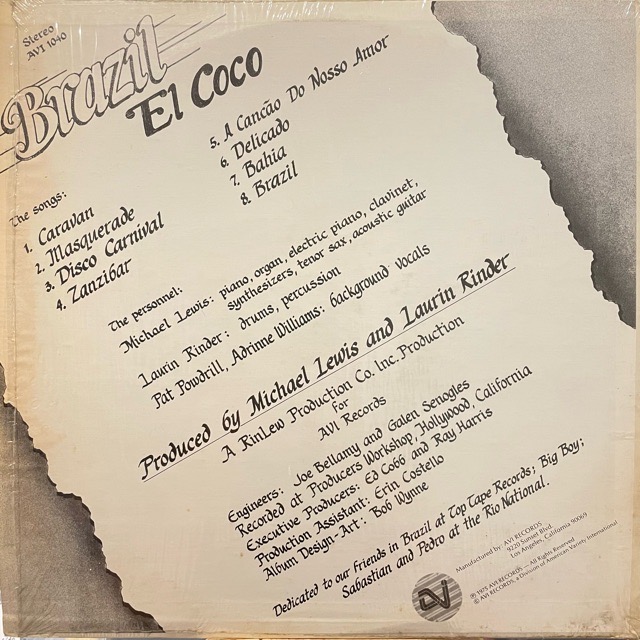 Stereo
AVI 1040
Brazil
El Coco
The songs:
1. Caravan
2. Masquerade
3. Disco Carnival
4. Zanzibar
5. A Canção Do Nosso Amor
6. Delicado
7. Bahia
8. Brazil
The personnel:
Michael Lewis: piano, organ, electric piano, clavinet,
synthesizers, tenor sax, acoustic guitar
Laurin Rinder: drums, percussion
Pat Powdrill, Adrinne Williams: background vocals
Produced by Michael Lewis and Laurin Rinder
A RinLew Production Co. Inc. Production
for
AVI Records
Engineers: Joe Bellamy and Galen Senogles
Recorded at Producers Workshop, Hollywood, California
Executive Producers: Ed Cobb and Ray Harris
Production Assistant: Erin Costello
Album Design-Art: Bob Wynne
Dedicated to our friends in Brazil at Top Tape Records; Big Boy;
Sabastian and Pedro at the Rio National.
Manufactured by: AVI RECORDS
9220 Sunset Blvd.
Los Angeles, California 90069
℗ 1975 AVI RECORDS — All Rights Reserved
© AVI RECORDS, a Division of American Variety International